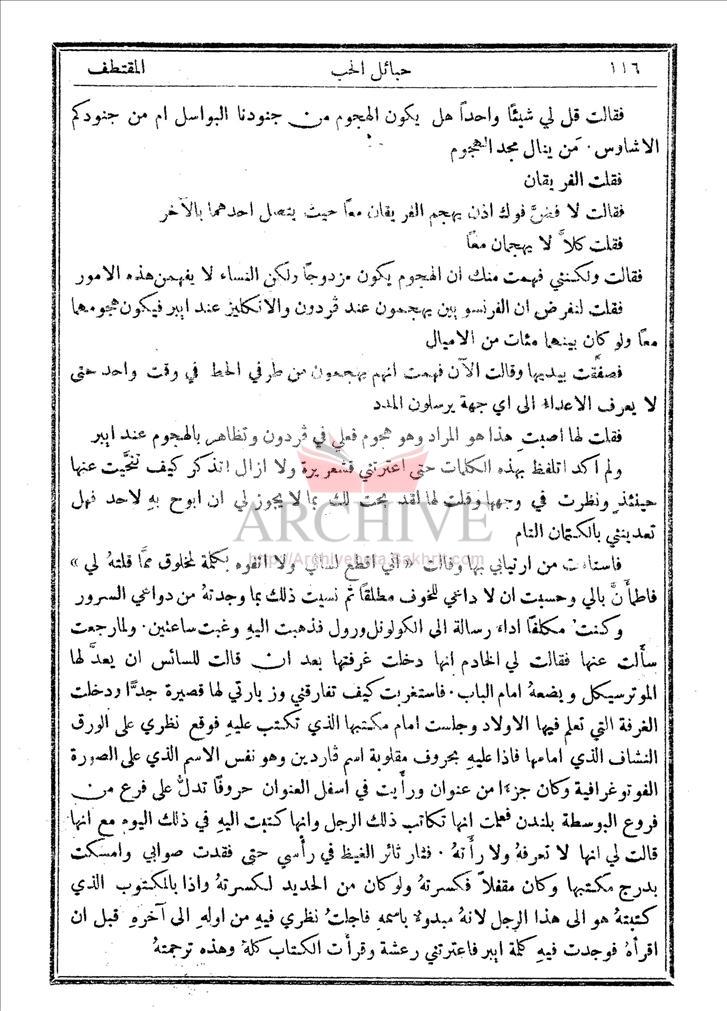 ١١٦ حبائل الحب المقتطف
فقالت قل لي شيئًا واحداً هل يكون الهجوم من جنودنا البواسل ام من جنودكم
الاشاوس. مَن ينال مجد الهجوم
فقلت الفريقان
فقالت لا فضَّ فوك اذن يهجم الفريقان معًا حيث يتصل احدهما بالآخر
فقلت كلاَّ لا يهجمان معًا
فقالت ولكنني فهمت منك ان الهجوم يكون مزدوجًا ولكن النساء لا يفهمن هذه الامور
فقلت لنفرض ان الفرنسويين يهجمون عند ڤردون والانكليز عند ايبر فيكون هجومهما
معًا ولو كان بينهما مئات من الاميال
فصفَّقت بيديها وقالت الآن فهمت انهم يهجمون من طرفي الخط في وقت واحد حتى
لا يعرف الاعداء الى اي جهة يرسلون المدد
فقلت لها اصبتِ هذا هو المراد وهو هجوم فعلي في ڤردون وتظاهر بالهجوم عند ايبر
ولم اكد اتلفظ بهذه الكلمات حتى اعترتني قشعريرة ولا ازال اتذكر كيف تنحَّيت عنها
حينئذٍ ونظرت في وجهها وقلت لها لقد بحت لك بما لا يجوز لي ان ابوح بهِ لاحد فهل
تعدينني بالكتمان التام
فاستاءت من ارتيابي بها وقالت « اني اقطع لساني ولا اتفوه بكلمة لمخلوق ممَّا قلتهُ لي »
فاطمأنَّ بالي وحسبت ان لا داعي للخوف مطلقًا ثم نسيت ذلك بما وجدتهُ من دواعي السرور
وكنت مكلفًا اداء رسالة الى الكولونل ورول فذهبت اليهِ وغبت ساعتين. ولما رجعت
سألت عنها فقالت لي الخادم انها دخلت غرفتها بعد ان قالت للسائس ان يعدَّ لها
الموترسيكل ويضعهُ امام الباب. فاستغربت كيف تفارقني وزيارتي لها قصيرة جدًّا ودخلت
الغرفة التي تعلم فيها الاولاد وجلست امام مكتبها الذي تكتب عليهِ فوقع نظري على الورق
النشاف الذي امامها فاذا عليهِ بحروف مقلوبة اسم ڤاردين وهو نفس الاسم الذي على الصورة
الفوتوغرافية وكان جزءًا من عنوان ورأيت في اسفل العنوان حروفًا تدلُّ على فرع من
فروع البوسطة بلندن فعلمت انها تكاتب ذلك الرجل وانها كتبت اليهِ في ذلك اليوم مع انها
قالت لي انها لا تعرفهُ ولا رأَتهُ. فثار ثائر الغيظ في رأسي حتى فقدت صوابي وامسكت
بدرج مكتبها وكان مقفلاً فكسرتهُ ولو كان من الحديد لكسرتهُ واذا بالمكتوب الذي
كتبتهُ هو الى هذا الرجل لانهُ مبدوء باسمهِ فاجلتُ نظري فيهِ من اولهِ الى آخرهِ قبل ان
اقرأهُ فوجدت فيهِ كلمة ايبر فاعترتني رعشة وقرأت الكتاب كلهُ وهذه ترجمتهُ
ARCHIVE
http://Archivebeta.Sakhrit.com